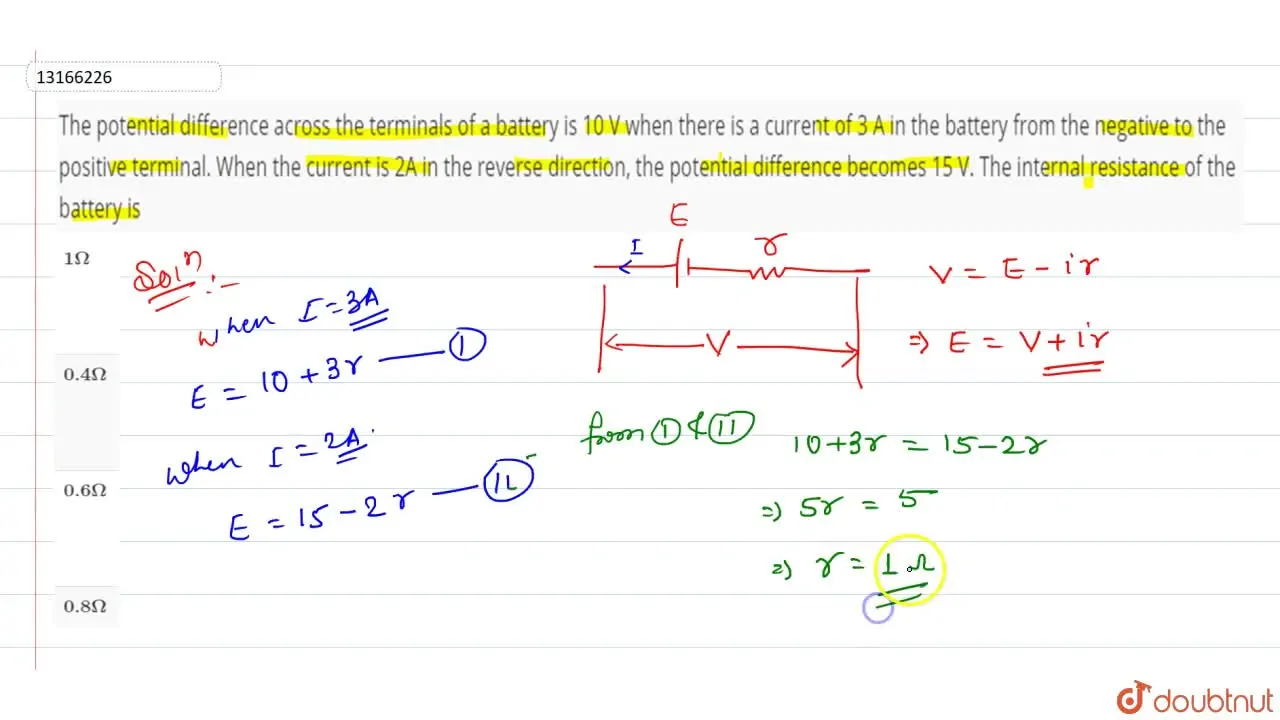 13166226
The potential difference across the terminals of a battery is 10 V when there is a current of 3 A in the battery from the negative to the
positive terminal. When the current is 2A in the reverse direction, the potential difference becomes 15 V. The internal resistance of the
battery is
1Ω
0.4Ω
0.6Ω
0.8Ω
Solⁿ :-
when I = 3A
E = 10 + 3r — I
when I = 2A
E = 15 - 2r — II
E
I
r
V
V = E - ir
⇒ E = V + ir
from I & II
10 + 3r = 15 - 2r
⇒ 5r = 5
⇒ r = 1 Ω
doubtnut